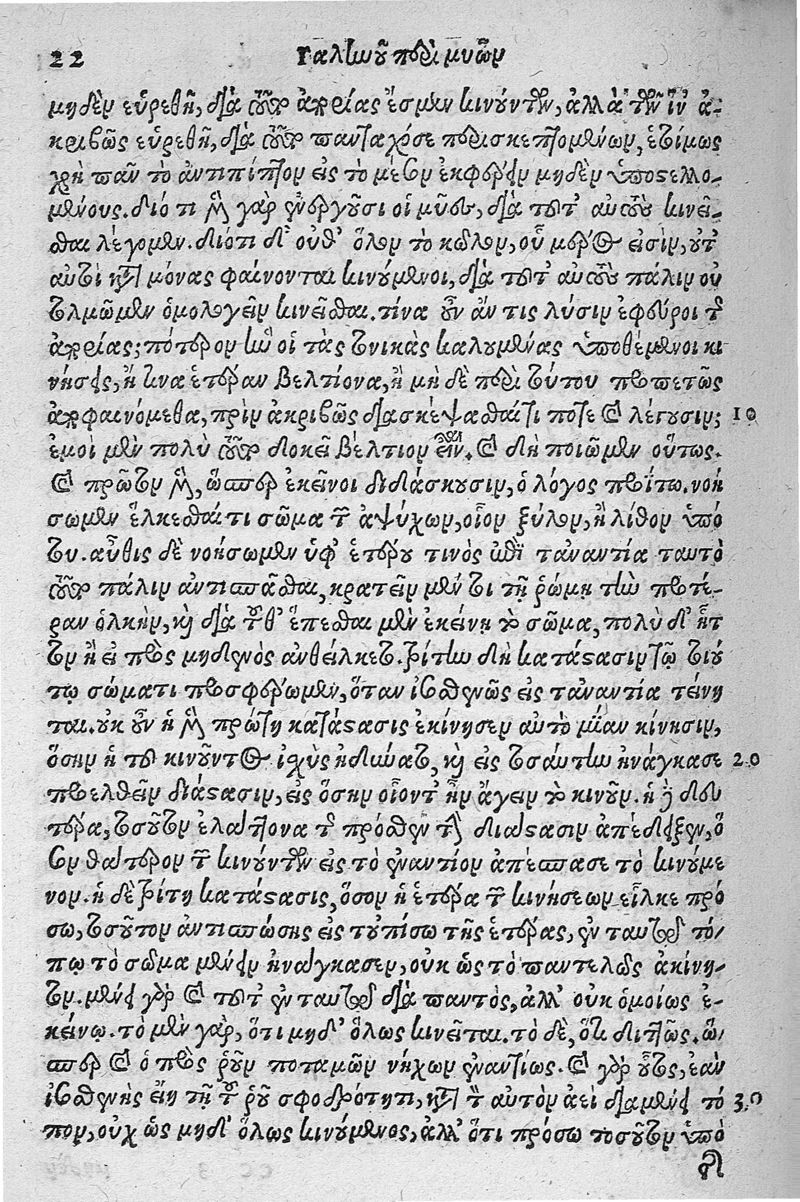 22 Γαλίωοῦ περὶ μυῶν
μηδὲν εὑρεθῇ, διὰ τῶν ἀπορίας ἐσμὲν κινούντων, ἀλλὰ τῶν ἵν' ἀ-
κριβῶς εὑρεθῇ, διὰ τῶν πανταχόσε περισκεπτομένων, ἑτοίμως
χρὴ πᾶν τὸ ἀντιπίπτον εἰς τὸ μέσον ἐκφέρειν μηδὲν ὑποστελλο-
μένους. διότι μὲν γὰρ ἐνεργοῦσι οἱ μῦες, διὰ τοῦτ' αὐτοὺς κινεῖ-
σθαι λέγομεν. διότι δ' οὔθ' ὅλον τὸ κῶλον, οὗ μέρος εἰσὶν, οὔτ'
αὐτοὶ κατὰ μόνας φαίνονται κινούμενοι, διὰ τοῦτ' αὐτοὺς πάλιν οὐ
τολμῶμεν ὁμολογεῖν κινεῖσθαι. τίνα οὖν ἄν τις λύσιν ἐφεύροι τῆς
ἀπορίας; πότερον ἣν οἱ τὰς τονικὰς καλουμένας ὑποθέμενοι κι
νήσεις, ἢ τινα ἑτέραν βελτίονα, ἢ μὴ δὲ περὶ τούτου προπετῶς
ἀποφαινόμεθα, πρὶν ἀκριβῶς διασκέψασθαί τι ποτε καὶ λέγουσιν; 10
ἐμοὶ μὲν πολὺ τοῦτο δοκεῖ βέλτιον εἶναι. καὶ δὴ ποιῶμεν οὕτως.
καὶ πρῶτον μὲν, ὥσπερ ἐκεῖνοι διδάσκουσιν, ὁ λόγος προΐτω. νοή
σωμεν ἕλκεσθαί τι σῶμα τῶν ἀψύχων, οἷον ξύλον, ἢ λίθον ὑπό
του. αὖθις δὲ νοήσωμεν ὑφ' ἑτέρου τινὸς ἐπὶ τἀναντία ταὐτὸ
τοῦτο πάλιν ἀντισπᾶσθαι, κρατεῖν μέντοι τῇ ῥώμῃ τὴν προτέ-
ραν ὁλκὴν, καὶ διὰ τοῦθ' ἕπεσθαι μὲν ἐκείνῃ τὸ σῶμα, πολὺ δ' ἧτ
τον ἢ εἰ πρὸς μηδενὸς ἀνθείλκετο. τρίτην δὴ κατάστασιν τῷ τοιού
τῳ σώματι προσφέρωμεν, ὅταν ἰσοσθενῶς εἰς τἀναντία τείνη
ται. οὐκ οὖν ἡ μὲν πρώτη κατάστασις ἐκίνησεν αὐτὸ μίαν κίνησιν,
ὅσην ἡ τοῦ κινοῦντος ἰσχὺς ἠδύνατο, καὶ εἰς τοσαύτην ἠνάγκασε 20
προελθεῖν διάστασιν, εἰς ὅσην οἷόντ' ἦν ἄγειν τὸ κινοῦν. ἡ δὲ δευ
τέρα, τοσοῦτον ἐλάττονα τῆς πρόσθεν τὴν διάστασιν ἀπέδειξεν, ὅ
σον θάτερον τῶν κινούντων εἰς τὸ ἐναντίον ἀπέσπασε τὸ κινούμε
νον. ἡ δὲ τρίτη κατάστασις, ὅσον ἡ ἑτέρα τῶν κινήσεων εἷλκε πρό
σω, τοσοῦτον ἀντισπώσης εἰς τοὐπίσω τῆς ἑτέρας, ἐν ταυτῷ τό-
πῳ τὸ σῶμα μένειν ἠνάγκασεν, οὐκ ὡς τὸ παντελῶς ἀκίνη-
τον. μένει γὰρ καὶ τοῦτ' ἐν ταυτῷ διὰ παντὸς, ἀλλ' οὐκ ὁμοίως ἐ-
κείνῳ. τὸ μὲν γὰρ, ὅτι μηδ' ὅλως κινεῖται. τὸ δὲ, ὅτι διττῶς. ὥ-
σπερ καὶ ὁ πρὸς ῥοῦν ποταμῶν νήχων ἐναντίως. καὶ γὰρ οὗτος, ἐὰν
ἰσοσθενὴς εἴη τῇ τοῦ ῥοῦ σφοδρότητι, κατὰ τὸν αὐτὸν ἀεὶ διαμένει τό 30
πον, οὐχ ὡς μηδ' ὅλως κινούμενος, ἀλλ' ὅτι πρόσω τοσοῦτον ὑπὸ